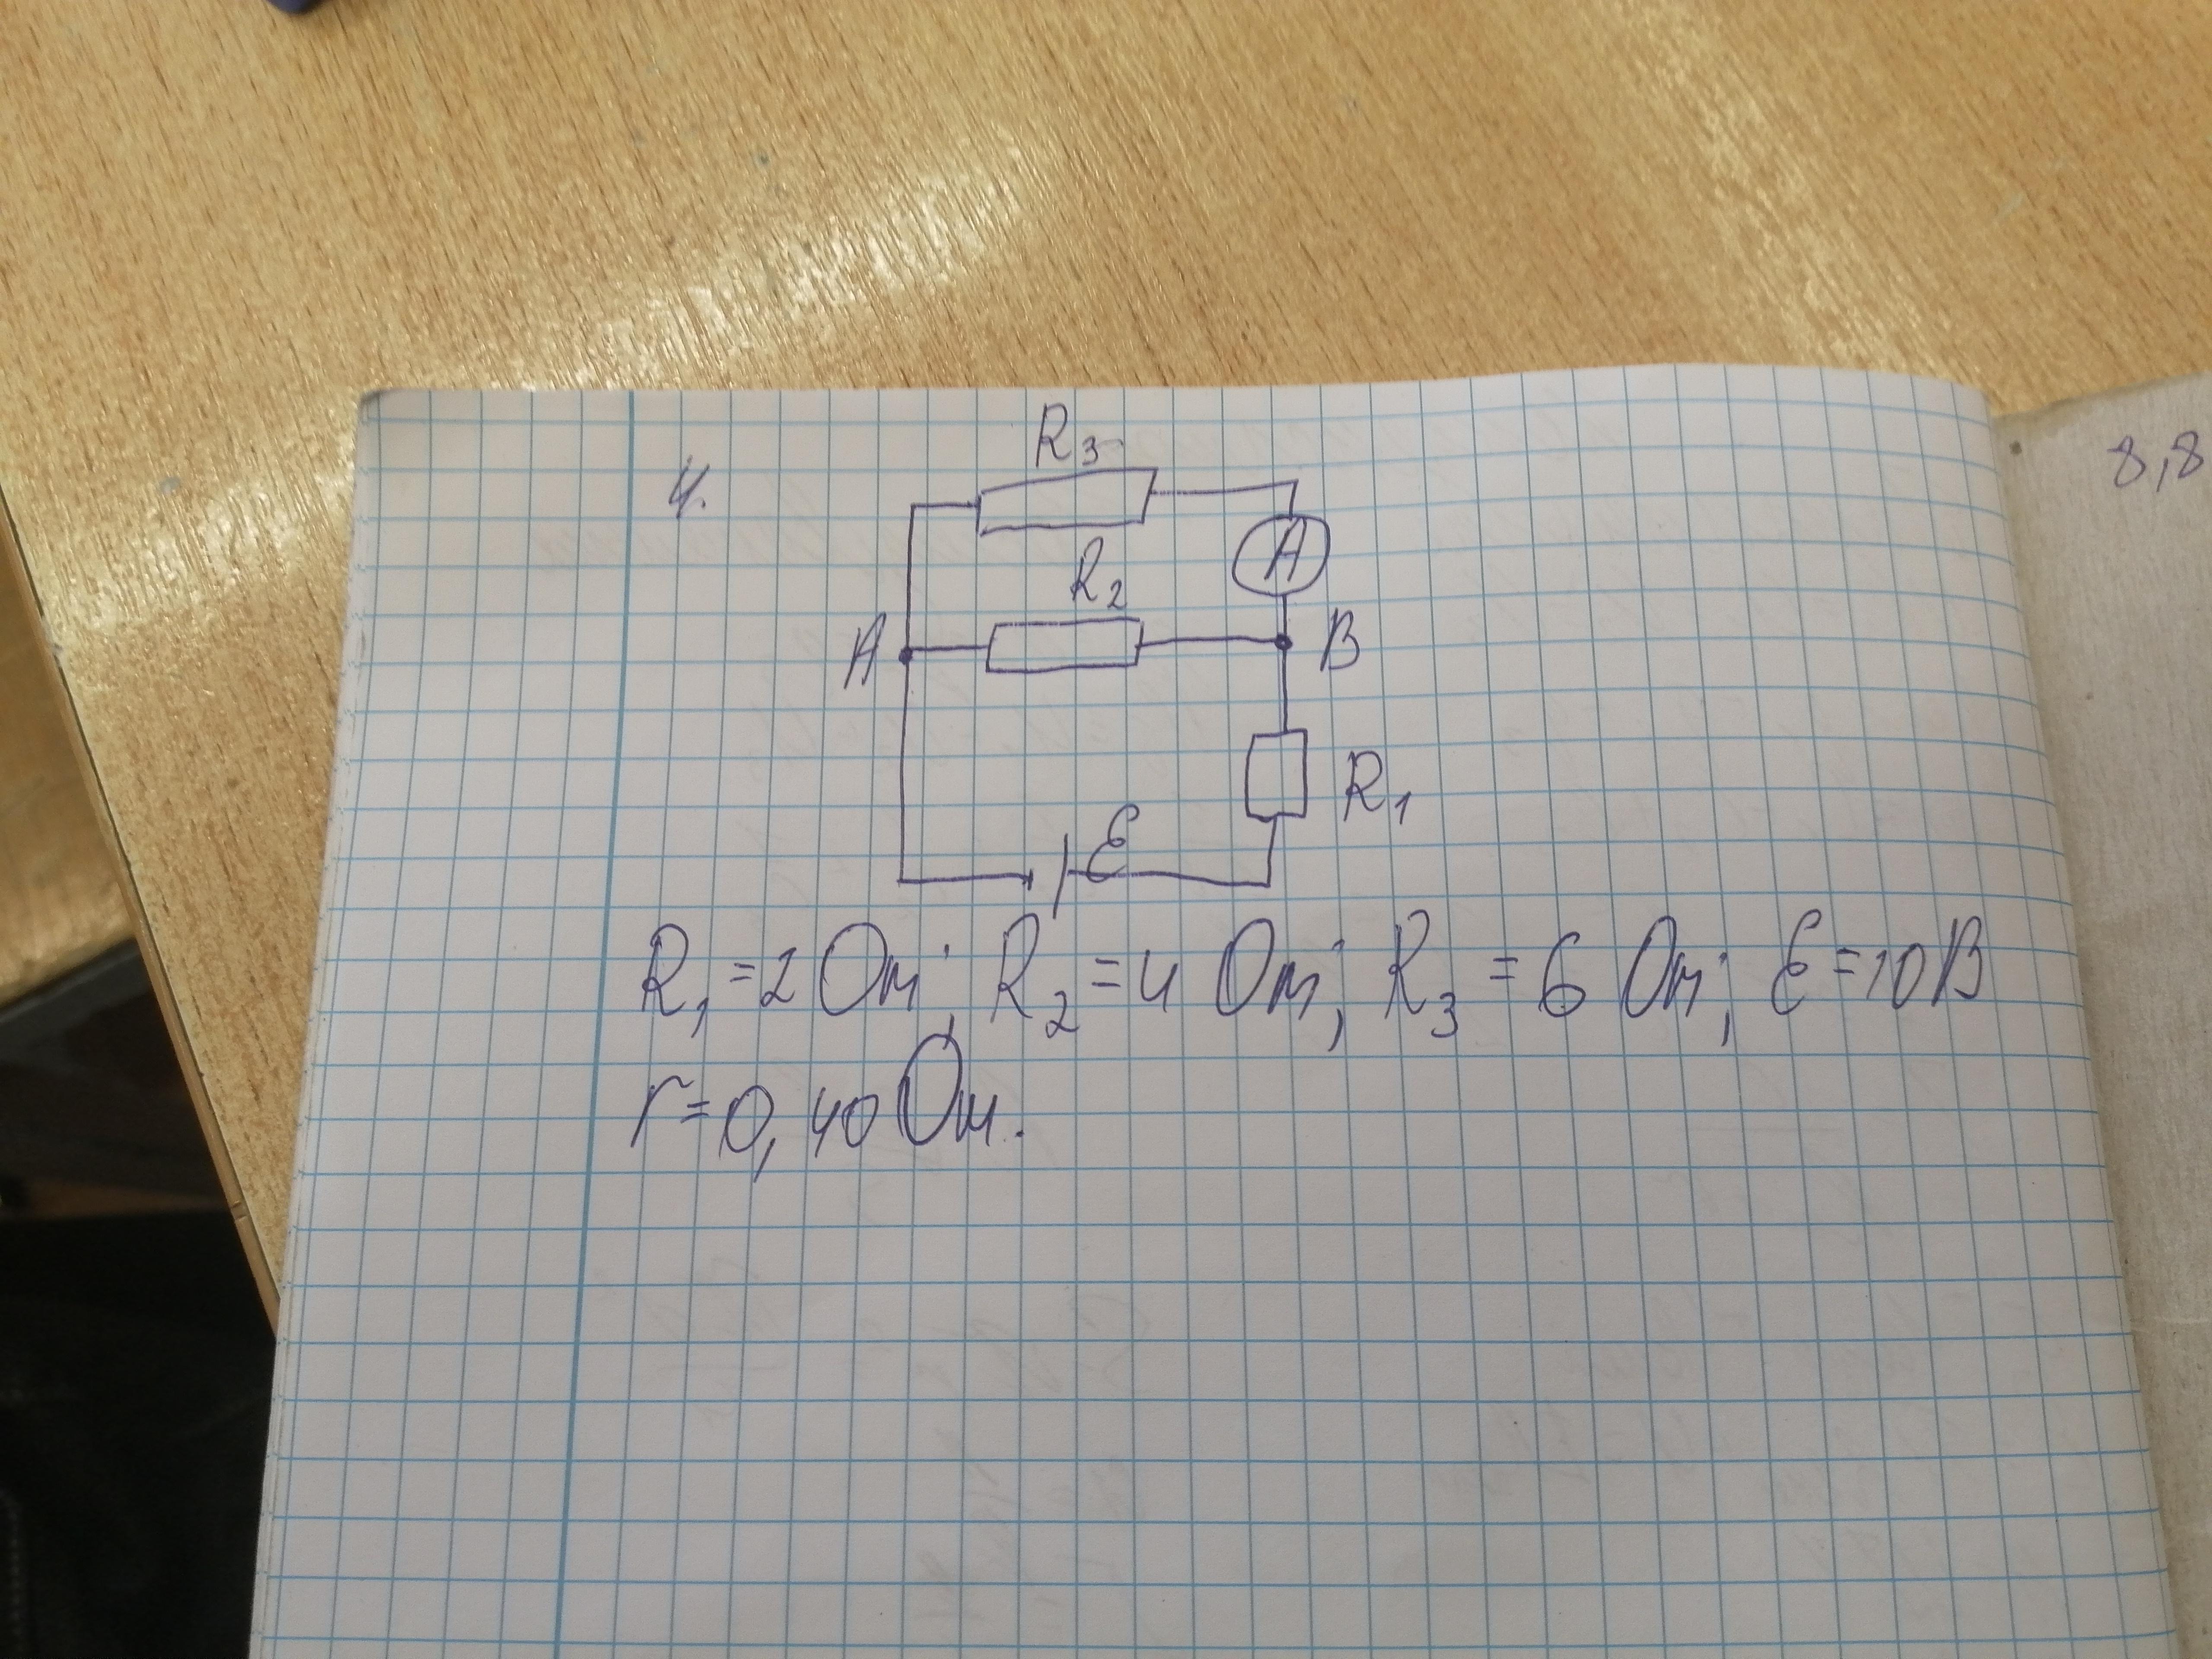 4.
R₃
8,8
A
R₂
A
B
R₁
ℰ
R₁ = 2 Ом; R₂ = 4 Ом; R₃ = 6 Ом; ℰ = 10 В
r = 0,40 Ом.